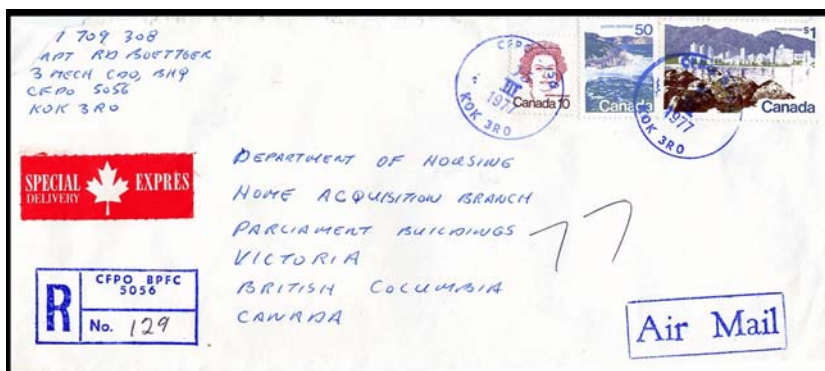 1 709 308
APT RD BOETTGER
3 MECH CDO, BHQ
CFPO 5056
K0K 3R0
CFPO
III
1977
K0K 3R0
Canada 10
50
Canada
$1
Canada
1977
K0K 3R0
SPECIAL EXPRÈS
DELIVERY
DEPARTMENT OF HOUSING
HOME ACQUISITION BRANCH
PARLIAMENT BUILDINGS
VICTORIA
BRITISH COLUMBIA
CANADA
77
R
CFPO BPFC
5056
No. 129
Air Mail